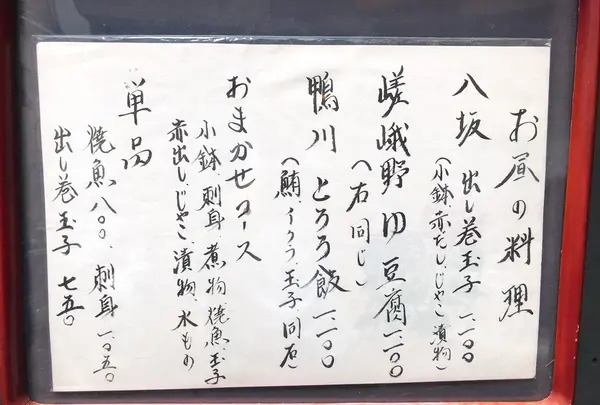 お昼の料理
八坂 出し巻玉子 一、一〇〇
(小鉢、赤だし、じゃこ、漬物)
嵯峨野 ゆ豆腐 一、一〇〇
(右同じ)
鴨川 とろろ飯 一、一〇〇
(鮪、イクラ、玉子、同右)
おまかせコース
小鉢 刺身 煮物 焼魚 玉子
赤出し、じゃこ、漬物、水もの
単品
焼魚 八〇〇、刺身 一、〇五〇
出し巻玉子 七五〇